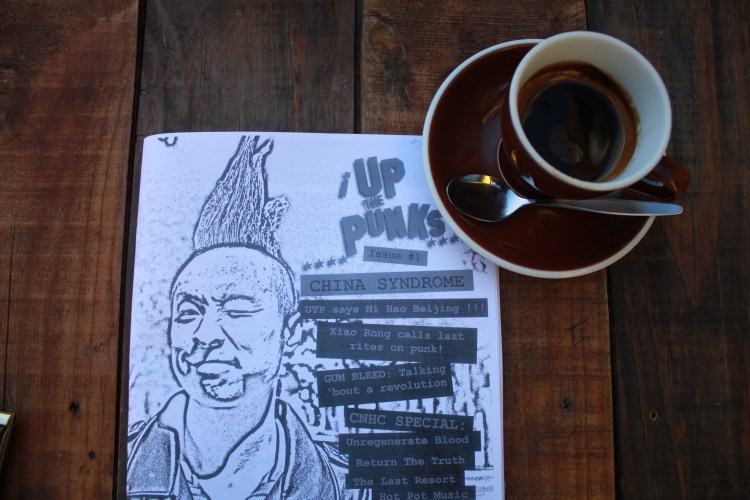 ¡UP
THE
PUNKS
Issue #1
CHINA SYNDROME
UTP says Ni Hao Beijing !!!
Xiao Rong calls last
rites on punk!
GUM BLEED: Talking
'bout a revolution
CNHC SPECIAL:
Unregenerate Blood
Return The Truth
The Last Resort
Hot Pot Music